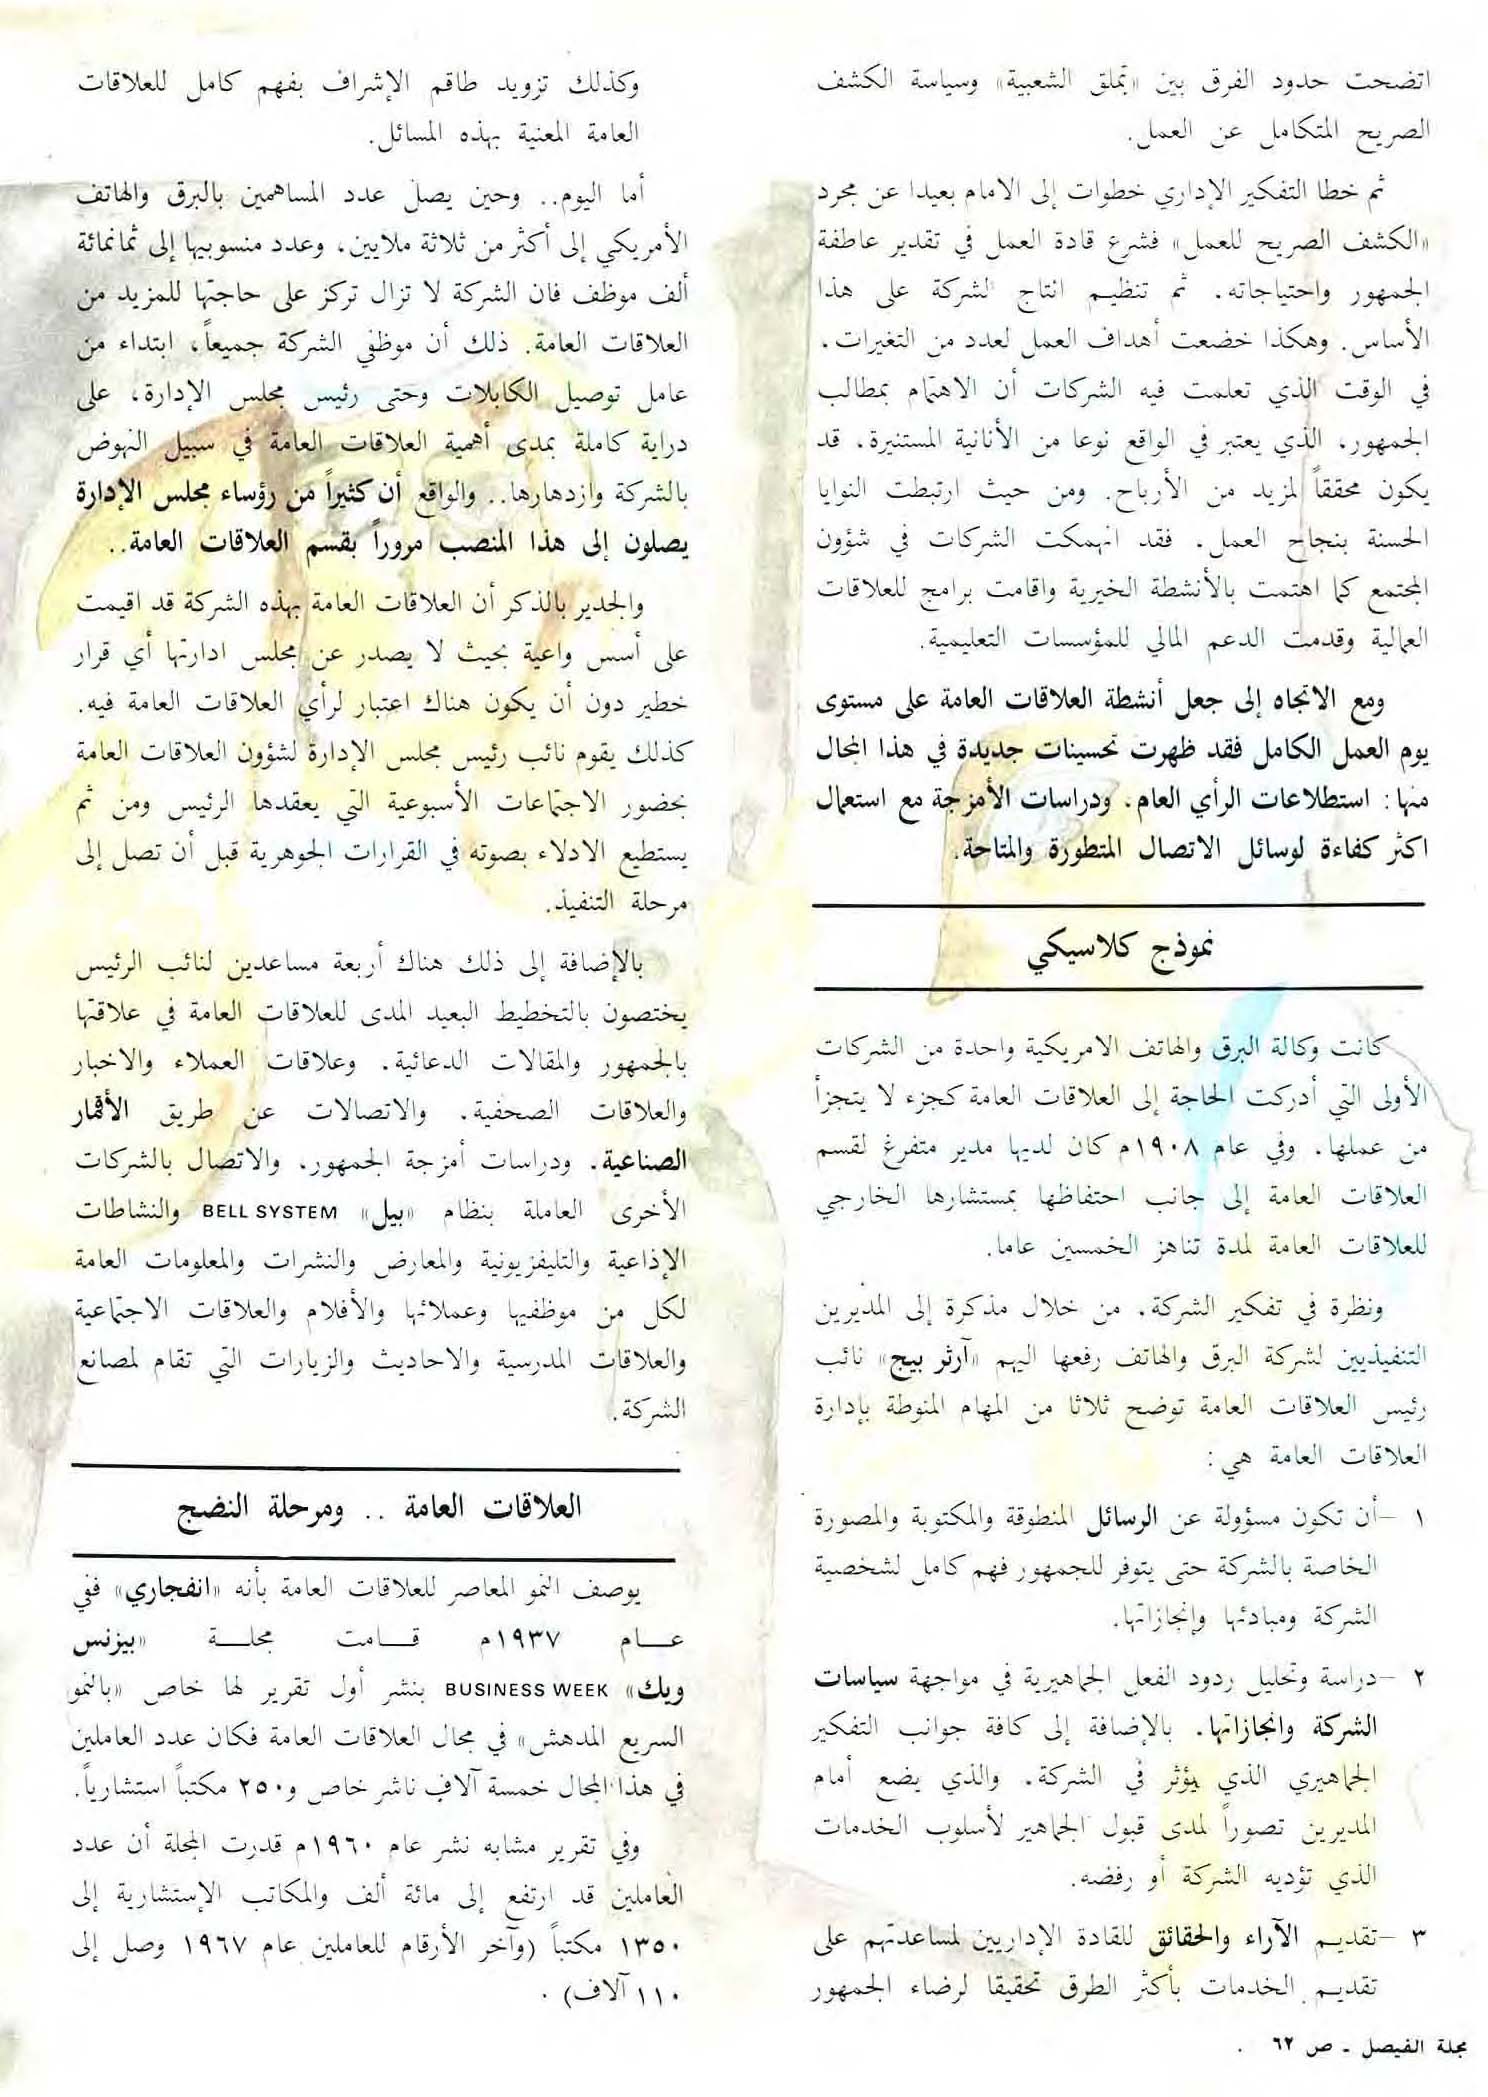 اتضحت حدود الفرق بين «تملق الشعبية» وسياسة الكشف
الصريح المتكامل عن العمل.
ثم خطا التفكير الإداري خطوات إلى الامام بعيدا عن مجرد
«الكشف الصريح للعمل» فشرع قادة العمل في تقدير عاطفة
الجمهور واحتياجاته، ثم تنظيم انتاج الشركة على هذا
الأساس. وهكذا خضعت أهداف العمل لعدد من التغيرات،
في الوقت الذي تعلمت فيه الشركات أن الاهتمام بمطالب
الجمهور، الذي يعتبر في الواقع نوعا من الأنانية المستنيرة، قد
يكون محققاً لمزيد من الأرباح. ومن حيث ارتبطت النوايا
الحسنة بنجاح العمل، فقد انهمكت الشركات في شؤون
المجتمع كما اهتمت بالأنشطة الخيرية واقامت برامج للعلاقات
العمالية وقدمت الدعم المالي للمؤسسات التعليمية.
ومع الاتجاه إلى جعل أنشطة العلاقات العامة على مستوى
يوم العمل الكامل فقد ظهرت تحسينات جديدة في هذا المجال
منها: استطلاعات الرأي العام، ودراسات الأمزجة مع استعمال
اكثر كفاءة لوسائل الاتصال المتطورة والمتاحة.
نموذج كلاسيكي
كانت وكالة البرق والهاتف الامريكية واحدة من الشركات
الأولى التي أدركت الحاجة إلى العلاقات العامة كجزء لا يتجزأ
من عملها، وفي عام ١٩٠٨م كان لديها مدير متفرغ لقسم
العلاقات العامة إلى جانب احتفاظها بمستشارها الخارجي
للعلاقات العامة لمدة تناهز الخمسين عاما.
ونظرة في تفكير الشركة، من خلال مذكرة إلى المديرين
التنفيذيين لشركة البرق والهاتف رفعها اليهم «آرثر بيج» نائب
رئيس العلاقات العامة توضح ثلاثا من المهام المنوطة بإدارة
العلاقات العامة هي:
١ – أن تكون مسؤولة عن الرسائل المنطوقة والمكتوبة والمصورة
الخاصة بالشركة حتى يتوفر للجمهور فهم كامل لشخصية
الشركة ومبادئها وإنجازاتها.
٢ – دراسة وتحليل ردود الفعل الجماهيرية في مواجهة سياسات
الشركة وانجازاتها، بالإضافة إلى كافة جوانب التفكير
الجماهيري الذي يؤثر في الشركة، والذي يضع أمام
المديرين تصوراً لمدى قبول الجماهير لأسلوب الخدمات
الذي تؤديه الشركة أو رفضه.
٣ – تقديم الآراء والحقائق للقادة الإداريين لمساعدتهم على
تقديم الخدمات بأكثر الطرق تحقيقا لرضاء الجمهور
وكذلك تزويد طاقم الإشراف بفهم كامل للعلاقات
العامة المعنية بهذه المسائل.
أما اليوم.. وحين يصل عدد المساهمين بالبرق والهاتف
الأمريكي إلى أكثر من ثلاثة ملايين، وعدد منسوبيها إلى ثمانمائة
ألف موظف فان الشركة لا تزال تركز على حاجتها للمزيد من
العلاقات العامة. ذلك أن موظفي الشركة جميعاً، ابتداء من
عامل توصيل الكابلات وحتى رئيس مجلس الإدارة، على
دراية كاملة بمدى أهمية العلاقات العامة في سبيل النهوض
بالشركة وازدهارها.. والواقع أن كثيراً من رؤساء مجلس الإدارة
يصلون إلى هذا المنصب مروراً بقسم العلاقات العامة..
والجدير بالذكر أن العلاقات العامة بهذه الشركة قد اقيمت
على أسس واعية بحيث لا يصدر عن مجلس ادارتها أي قرار
خطير دون أن يكون هناك اعتبار لرأي العلاقات العامة فيه.
كذلك يقوم نائب رئيس مجلس الإدارة لشؤون العلاقات العامة
بحضور الاجتماعات الأسبوعية التي يعقدها الرئيس ومن ثم
يستطيع الادلاء بصوته في القرارات الجوهرية قبل أن تصل إلى
مرحلة التنفيذ.
بالإضافة إلى ذلك هناك أربعة مساعدين لنائب الرئيس
يختصون بالتخطيط البعيد المدى للعلاقات العامة في علاقتها
بالجمهور والمقالات الدعائية، وعلاقات العملاء والاخبار
والعلاقات الصحفية، والاتصالات عن طريق الأقمار
الصناعية، ودراسات أمزجة الجمهور، والاتصال بالشركات
الأخرى العاملة بنظام «بيل» BELL SYSTEM والنشاطات
الإذاعية والتليفزيونية والمعارض والنشرات والمعلومات العامة
لكل من موظفيها وعملائها والأفلام والعلاقات الاجتماعية
والعلاقات المدرسية والاحاديث والزيارات التي تقام لمصانع
الشركة.
العلاقات العامة .. ومرحلة النضج
يوصف النمو المعاصر للعلاقات العامة بأنه «انفجاري» ففي
عــام ١٩٣٧م قــامت مجلــة «بيزنس
ويك» BUSINESS WEEK بنشر أول تقرير لها خاص «بالنمو
السريع المدهش» في مجال العلاقات العامة فكان عدد العاملين
في هذا المجال خمسة آلاف ناشر خاص و٢٥٠ مكتباً استشارياً.
وفي تقرير مشابه نشر عام ١٩٦٠م قدرت المجلة أن عدد
العاملين قد ارتفع إلى مائة ألف والمكاتب الإستشارية إلى
١٣٥٠ مكتباً (وآخر الأرقام للعاملين عام ١٩٦٧ وصل إلى
١١٠ آلاف).
مجلة الفيصل - ص ٦٢